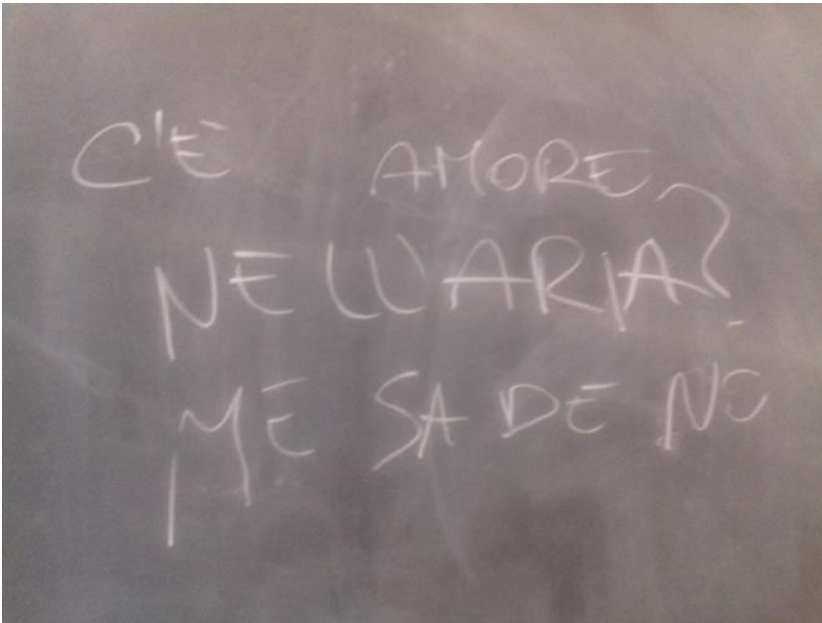 C'È AMORE
NELL'ARIA?
ME SA DE NO